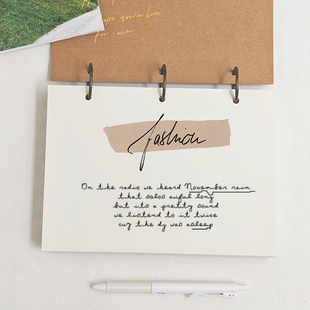 you're here
for me
fashion
On the radio we heard November rain
that solos awful long
but its a pretty sound
we listend to it twice
cuz the dj was asleep